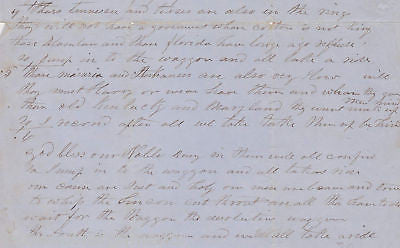 4 thare tennessee and these are also in the ring
they will not have a government whare cotton is not king
thare Alabama and thare florida have long ago
So Jump in to the waggon and all take a ride
5 thare masuria and Arkansas are also very slow
they must Hurry or wear leave them and when
then old Kentucky and Maryland they wont make up
So I recond after all we take them up be
6
God bless our Noble Army in them wide all confide
So Jump in to the waggon and all take a ride
our cause are Just and holy our men are and
to whip the Lincon cut throats are all the
wait for the Waggon the waggon
the South is the waggon and we will all take a ride